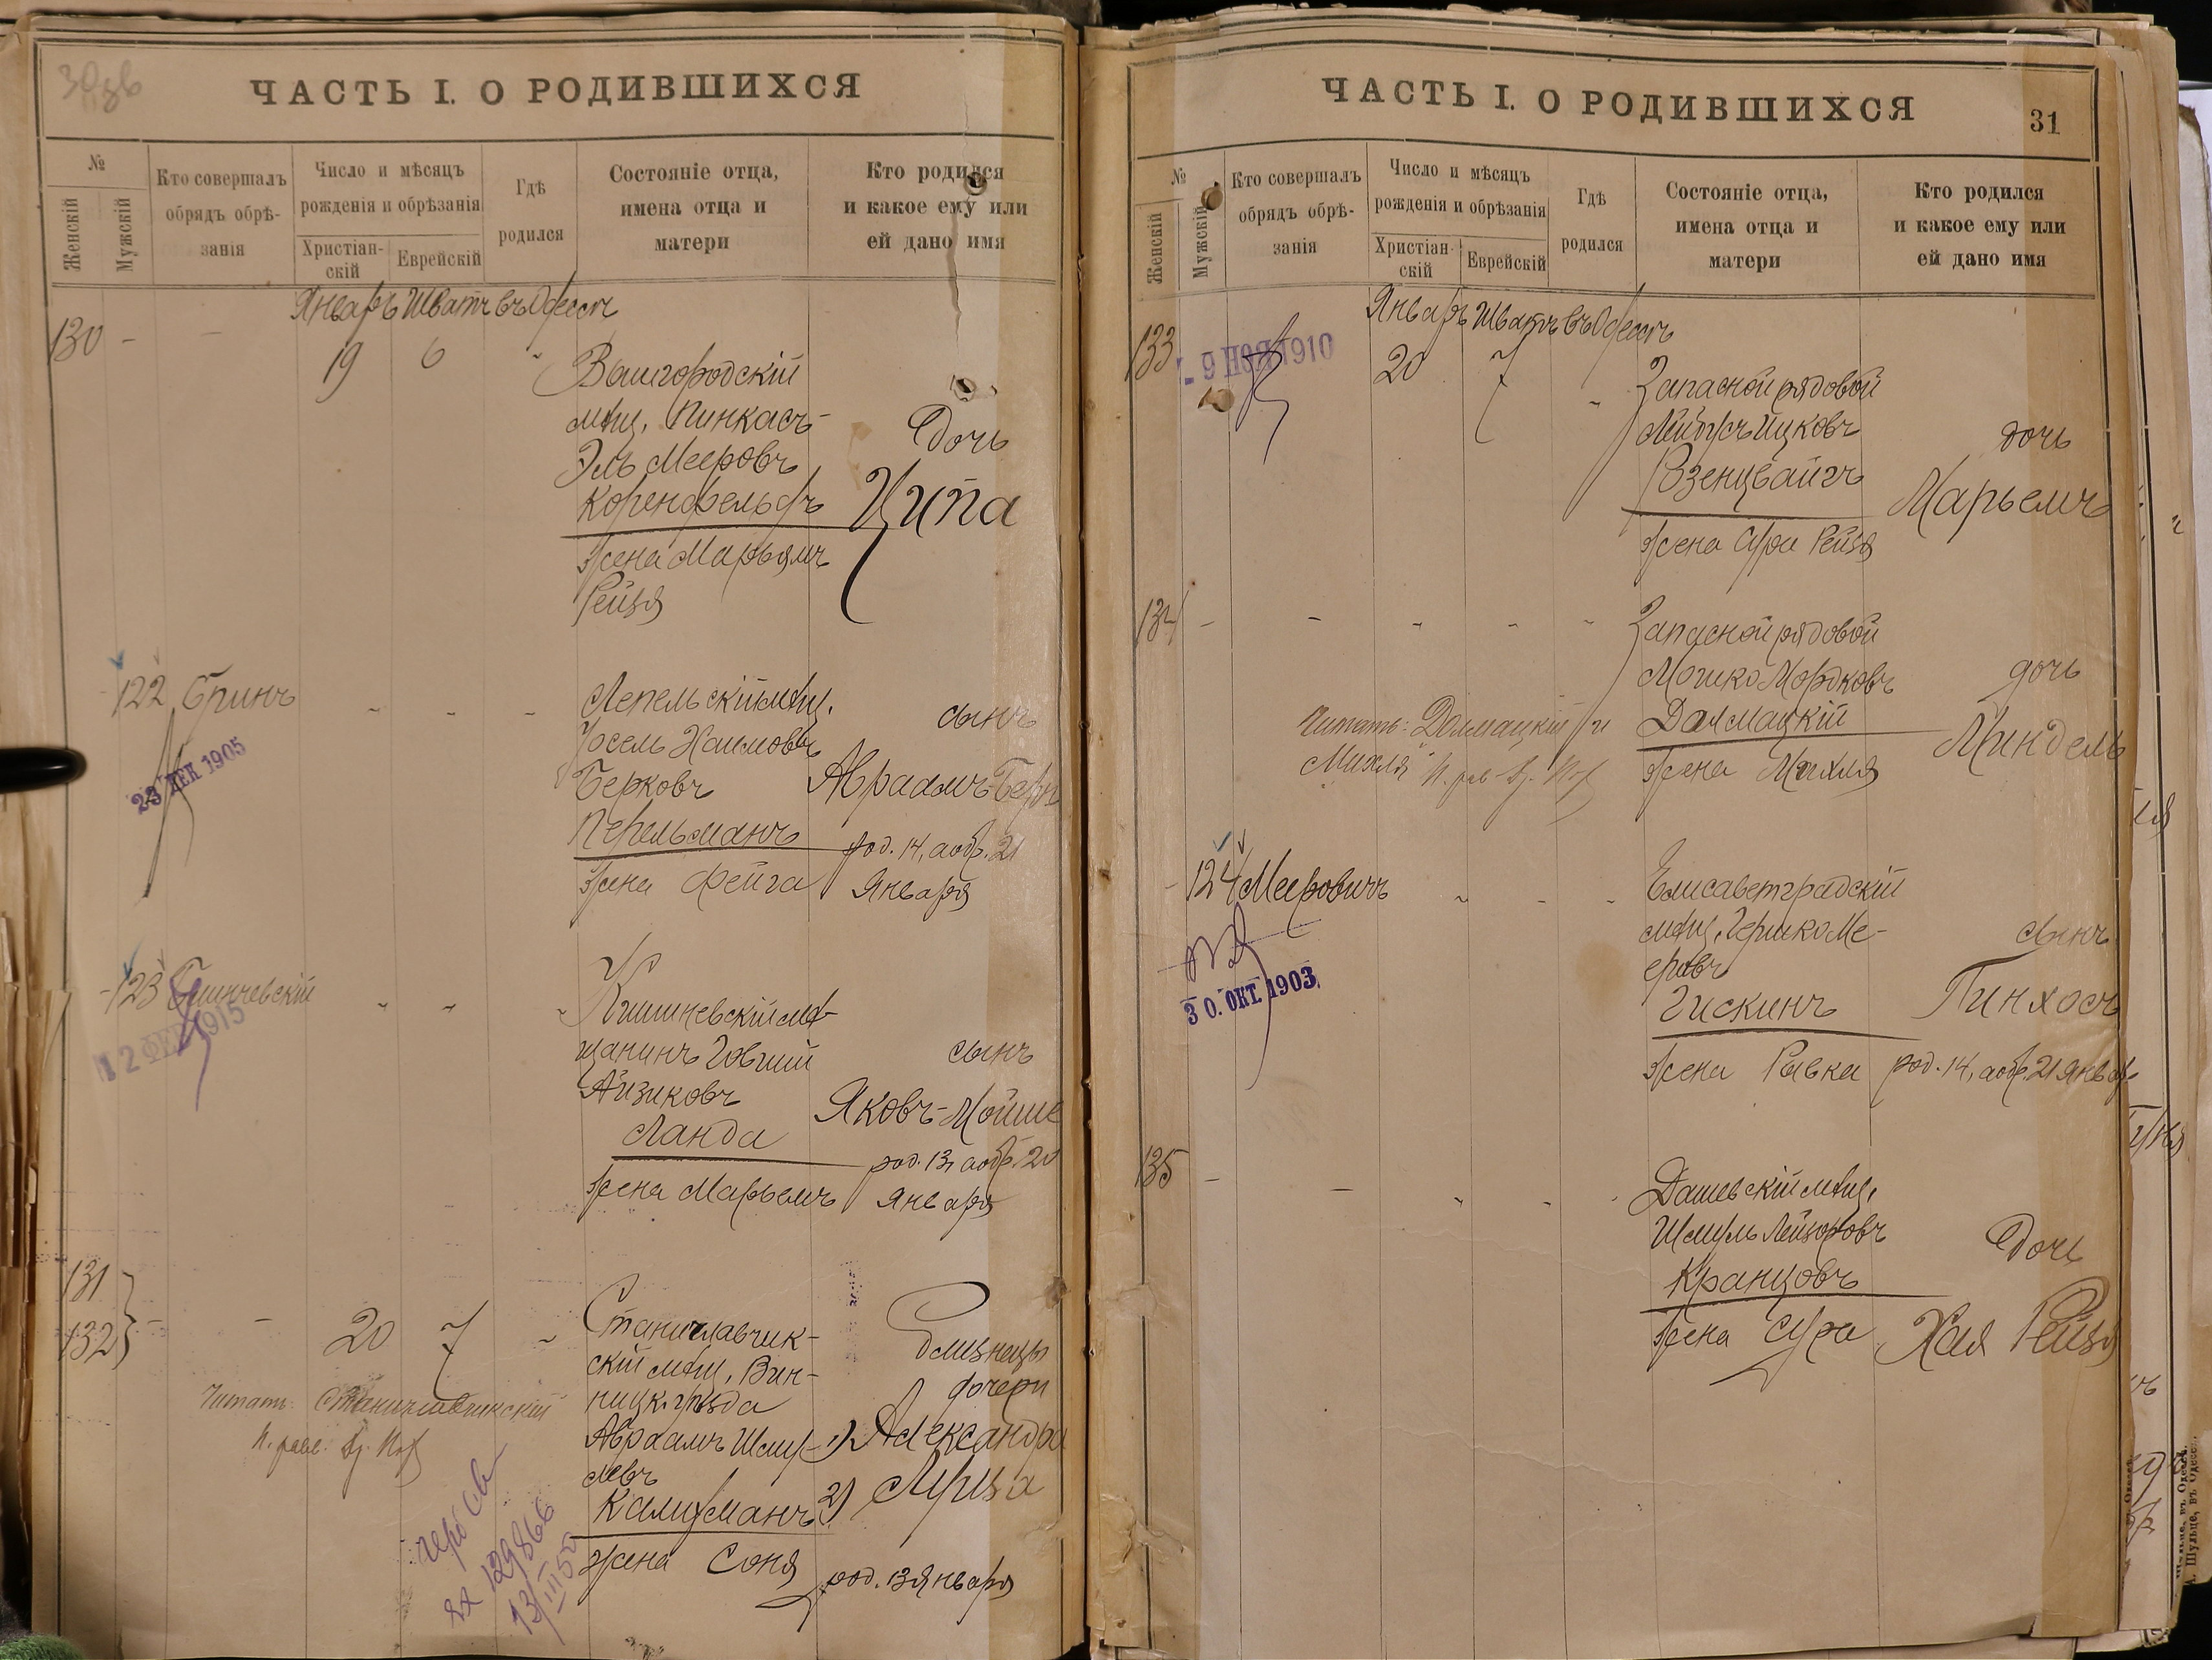 30 об
ЧАСТЬ I. О РОДИВШИХСЯ
№
Женскій
Мужской
Кто совершалъ
обрядъ обрѣ-
занія
Число и мѣсяцъ
рожденія и обрѣзанія
Христіан-
скій
Еврейскій
Гдѣ
родился
Состояніе отца,
имена отца и
матери
Кто родился
и какое ему или
ей дано имя
Январь Шватъ въ Одессѣ
130 - - 19 6 "
Вышгородскій
мѣщ. Пинкасъ-
Эль Мееровъ
Коренфельдъ
жена Марьямъ
Рейзя
Дочь
Ципа
122 Гринъ
23 ДЕК 1905
Лепельскій мѣщ.
Іосель Хаимовъ
Берковъ
Перельманъ
жена Фейга
сынъ
Авраамъ-Беръ
род. 14, а обр. 21
Января
123
12 ФЕВ 1915
Кишиневскій мѣ-
щанинъ Говший
Айзиковъ
Ланда
жена Марьемъ
сынъ
Яковъ-Мойше
род. 13, а обр. 20
Января
131
132 - - 20 7 "
Читать: Станиславчикскій
Станиславчик-
скій мѣщ., Вин-
ницк. уѣзда
Авраамъ Шму-
левъ
Калихманъ
жена Соня
близнецы
дочери
1) Александра
2) Луиза
род. 13 Января
вх 129866
13/III 50
ЧАСТЬ I. О РОДИВШИХСЯ
31
№
Женскій
Мужскій
Кто совершалъ
обрядъ обрѣ-
занія
Число и мѣсяцъ
рожденія и обрѣзанія
Христіан-
скій
Еврейскій
Гдѣ
родился
Состояніе отца,
имена отца и
матери
Кто родился
и какое ему или
ей дано имя
Январь Шватъ въ Одессѣ
133 20 7 "
- 9 НОЯ 1910
Запасной рядовой
Лейзеръ Ицковъ
Розенцвайгъ
жена Сура Рейзя
дочь
Марьемъ
134 - - - - -
Запасной рядовой
Мошко Мордковъ
Далмацкій
жена Михля
дочь
Миндель
Читать: Долмацкій и
Михля
124 Мееровичъ
30. ОКТ. 1903
Елисаветградскій
мѣщ. Гершко Ме-
еровъ
Гискинъ
жена Рывка
сынъ
Пинхосъ
род. 14, а обр. 21 Января
135 - -
Дашевскій мѣщ.
Шмуль Лейзоровъ
Кранцовъ
жена Сура
Дочь
Хая Рейзя